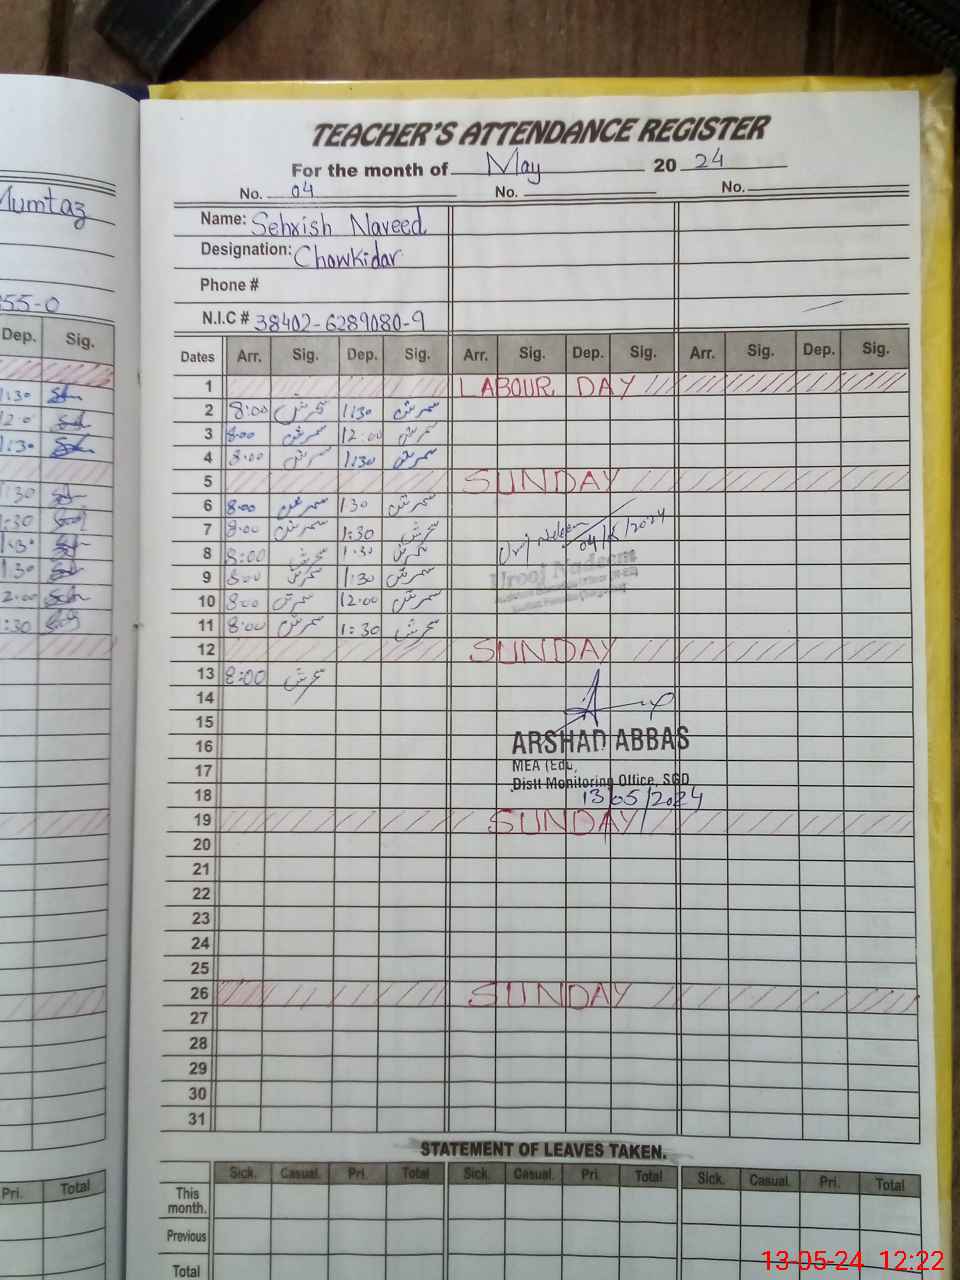 TEACHER'S ATTENDANCE REGISTER
For the month of May 2024
No. 04 No. No.
Mumtaz
Name: Sehrish Naveed
Designation: Chowkidar
Phone #
355-0
N.I.C # 38402-6289080-9
Dep. Sig. Dates Arr. Sig. Dep. Sig. Arr. Sig. Dep. Sig. Arr. Sig. Dep. Sig.
1 LABOUR DAY
1:30 2 8:00 سحرش 1:30 سحرش
12:0 3 8:00 سحرش 12:00 سحرش
1:30 4 8:00 سحرش 1:30 سحرش
5 SUNDAY
1:30 6 8:00 سحرش 1:30 سحرش
1:30 7 8:00 سحرش 1:30 سحرش
1:30 8 8:00 سحرش 1:30 سحرش
04/5/2024
Urooj Nadeem
1:30 9 8:00 سحرش 1:30 سحرش
2:00 10 8:00 سحرش 12:00 سحرش
1:30 11 8:00 سحرش 1:30 سحرش
12 SUNDAY
13 8:00 سحرش
14
15
16 ARSHAD ABBAS
17 MEA (Edu.
Distt Monitoring Office, SGD
18 13/05/2024
19 SUNDAY
20
21
22
23
24
25
26 SUNDAY
27
28
29
30
31
STATEMENT OF LEAVES TAKEN.
Pri. Total Sick. Casual. Pri. Total Sick. Casual. Pri. Total Sick. Casual. Pri. Total
This month.
Previous
Total
13-05-24 12:22